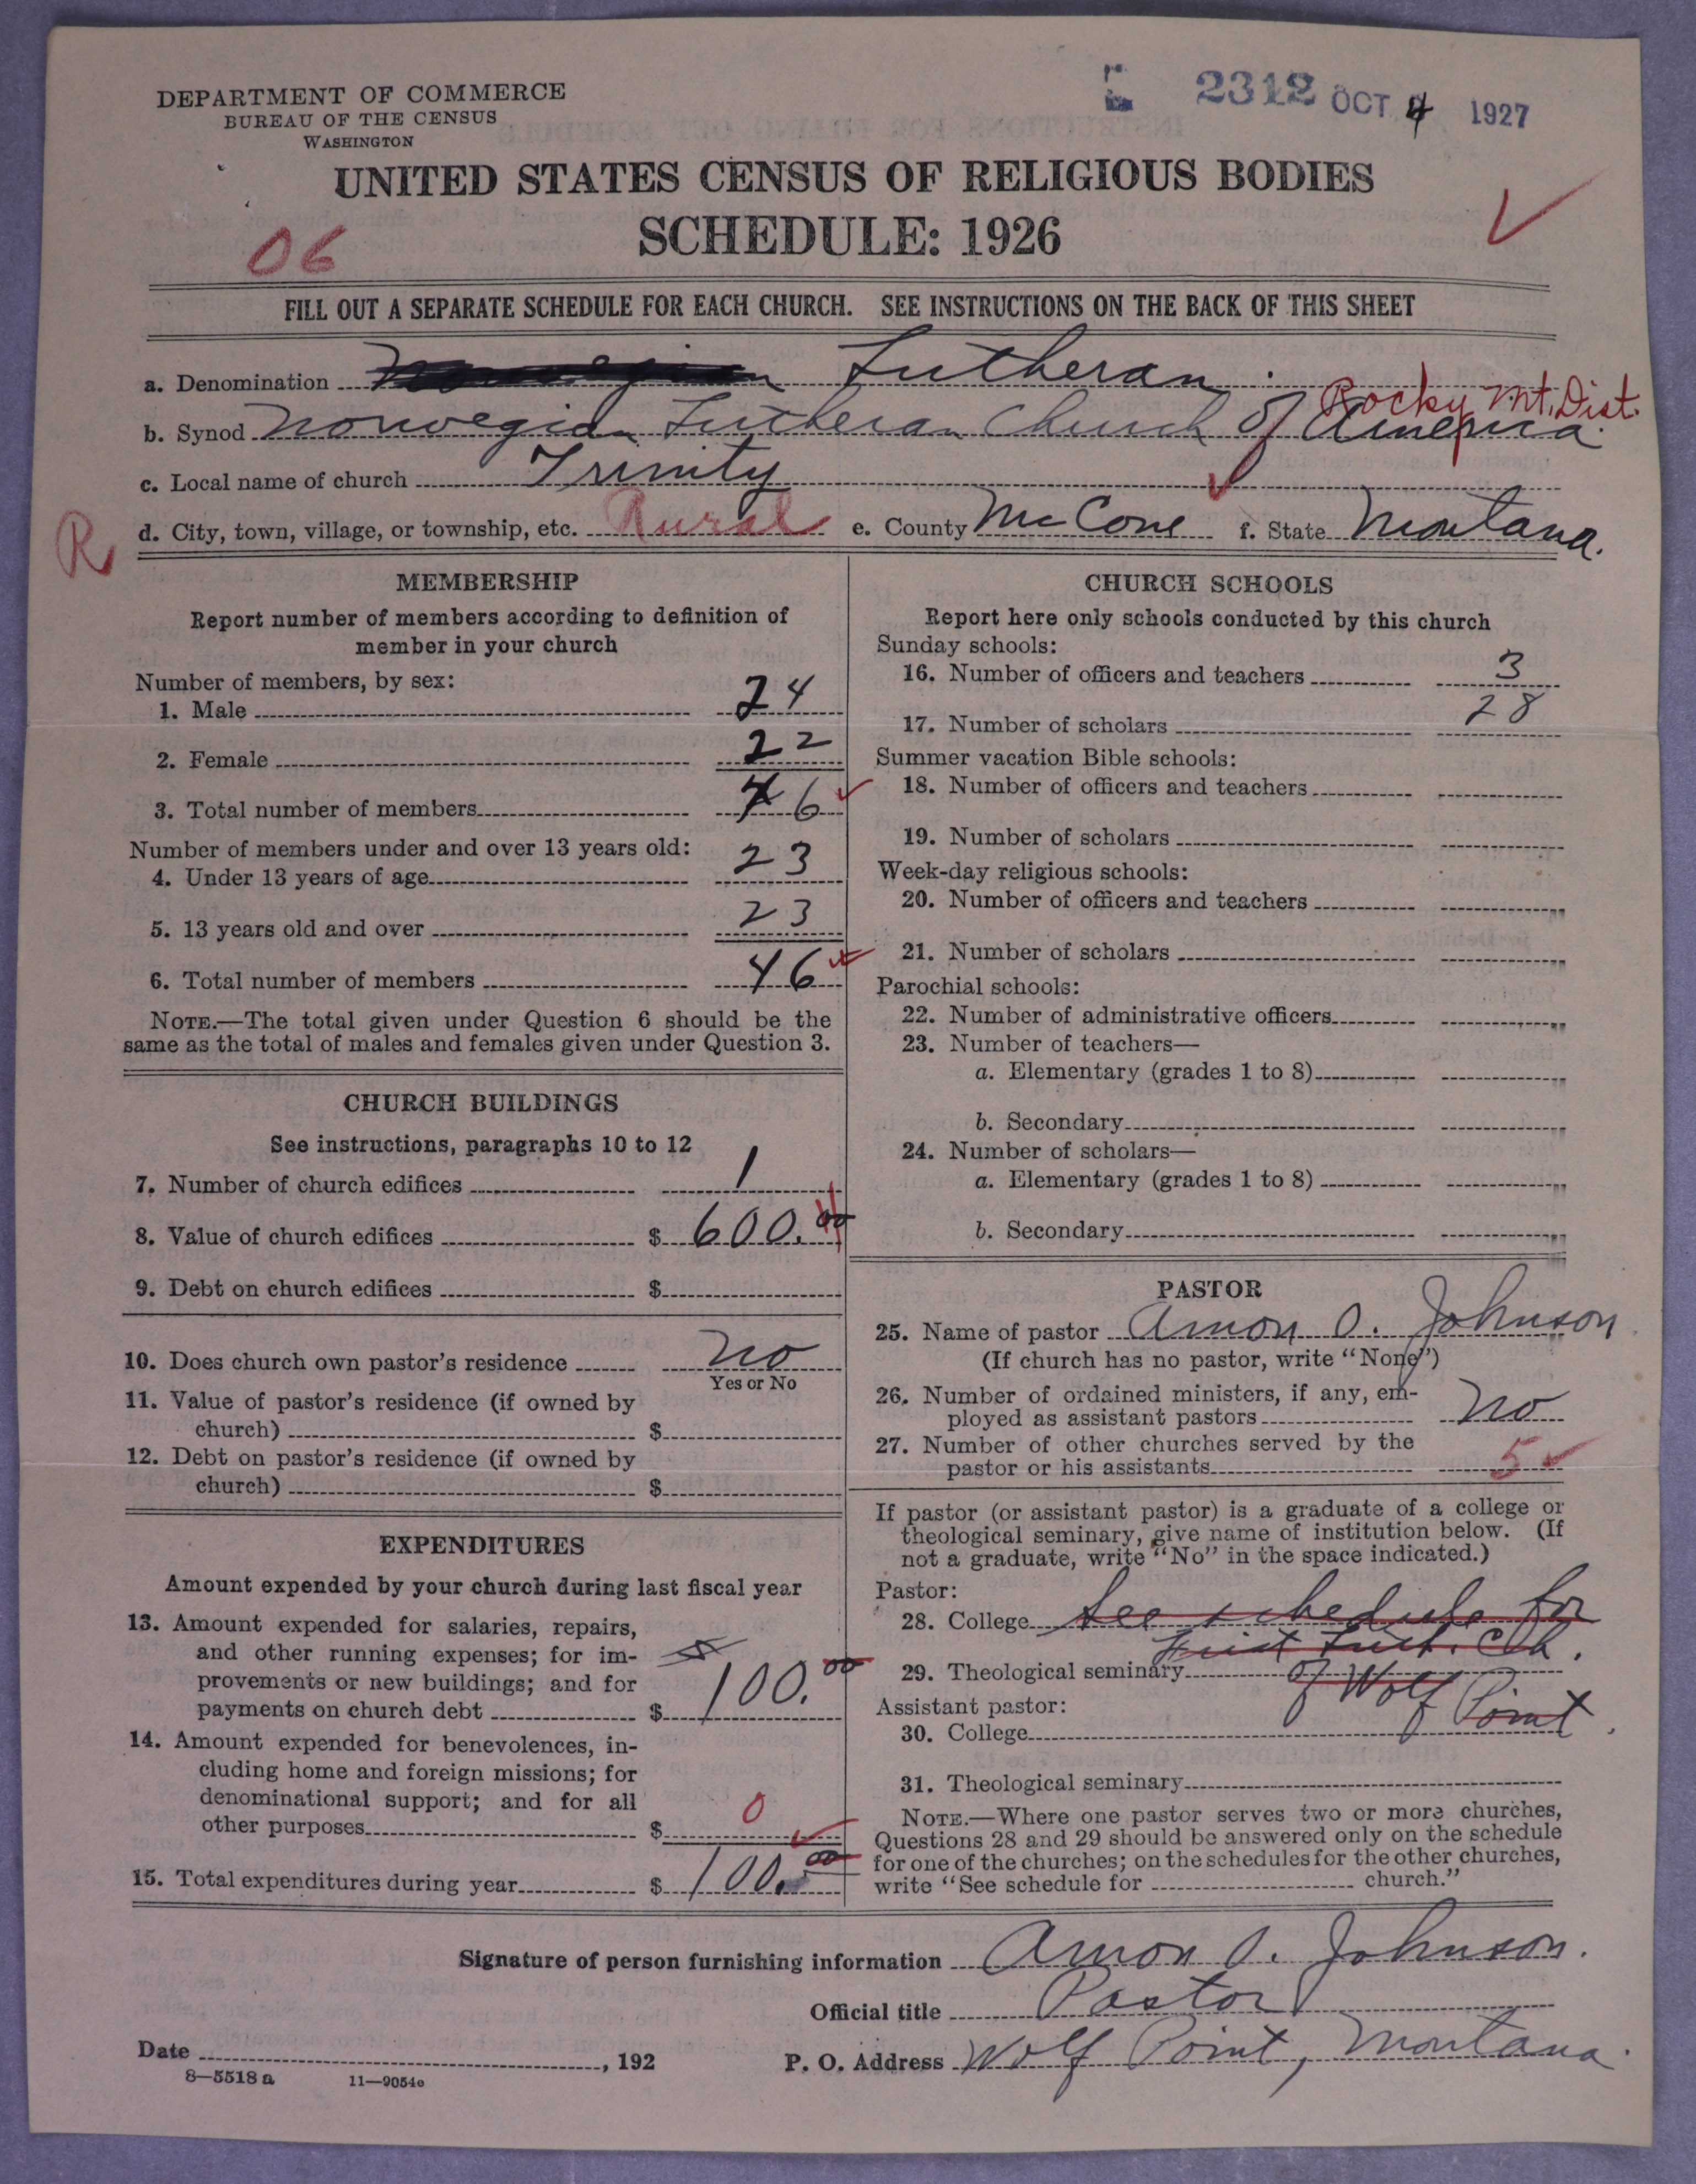 DEPARTMENT OF COMMERCE
BUREAU OF THE CENSUS
WASHINGTON
2312 OCT 4 1927
UNITED STATES CENSUS OF RELIGIOUS BODIES
SCHEDULE: 1926
06
FILL OUT A SEPARATE SCHEDULE FOR EACH CHURCH. SEE INSTRUCTIONS ON THE BACK OF THIS SHEET
a. Denomination Lutheran
Rocky Mt. Dist.
b. Synod Norwegian Lutheran Church of America.
c. Local name of church Trinity
R d. City, town, village, or township, etc. Rural e. County McCone f. State Montana.
MEMBERSHIP
Report number of members according to definition of
member in your church
Number of members, by sex:
1. Male 24
2. Female 22
3. Total number of members 46
Number of members under and over 13 years old:
4. Under 13 years of age 23
5. 13 years old and over 23
6. Total number of members 46
NOTE.—The total given under Question 6 should be the
same as the total of males and females given under Question 3.
CHURCH BUILDINGS
See instructions, paragraphs 10 to 12
7. Number of church edifices 1
8. Value of church edifices $ 600.00
9. Debt on church edifices $
10. Does church own pastor's residence No
Yes or No
11. Value of pastor's residence (if owned by
church) $
12. Debt on pastor's residence (if owned by
church) $
EXPENDITURES
Amount expended by your church during last fiscal year
13. Amount expended for salaries, repairs,
and other running expenses; for im-
provements or new buildings; and for
payments on church debt $ 100.00
14. Amount expended for benevolences, in-
cluding home and foreign missions; for
denominational support; and for all
other purposes $ 0
15. Total expenditures during year $ 100.00
CHURCH SCHOOLS
Report here only schools conducted by this church
Sunday schools:
16. Number of officers and teachers 3
17. Number of scholars 28
Summer vacation Bible schools:
18. Number of officers and teachers
19. Number of scholars
Week-day religious schools:
20. Number of officers and teachers
21. Number of scholars
Parochial schools:
22. Number of administrative officers
23. Number of teachers—
a. Elementary (grades 1 to 8)
b. Secondary
24. Number of scholars—
a. Elementary (grades 1 to 8)
b. Secondary
PASTOR
25. Name of pastor Amon O. Johnson
(If church has no pastor, write "None")
26. Number of ordained ministers, if any, em-
ployed as assistant pastors No
27. Number of other churches served by the
pastor or his assistants 5
If pastor (or assistant pastor) is a graduate of a college or
theological seminary, give name of institution below. (If
not a graduate, write "No" in the space indicated.)
Pastor:
28. College See schedule for
First Luth. Ch.
29. Theological seminary of Wolf Point.
Assistant pastor:
30. College
31. Theological seminary
NOTE.—Where one pastor serves two or more churches,
Questions 28 and 29 should be answered only on the schedule
for one of the churches; on the schedules for the other churches,
write "See schedule for church."
Signature of person furnishing information Amon O. Johnson.
Official title Pastor
Date , 192 P. O. Address Wolf Point, Montana.
8—5518 a 11—9054c